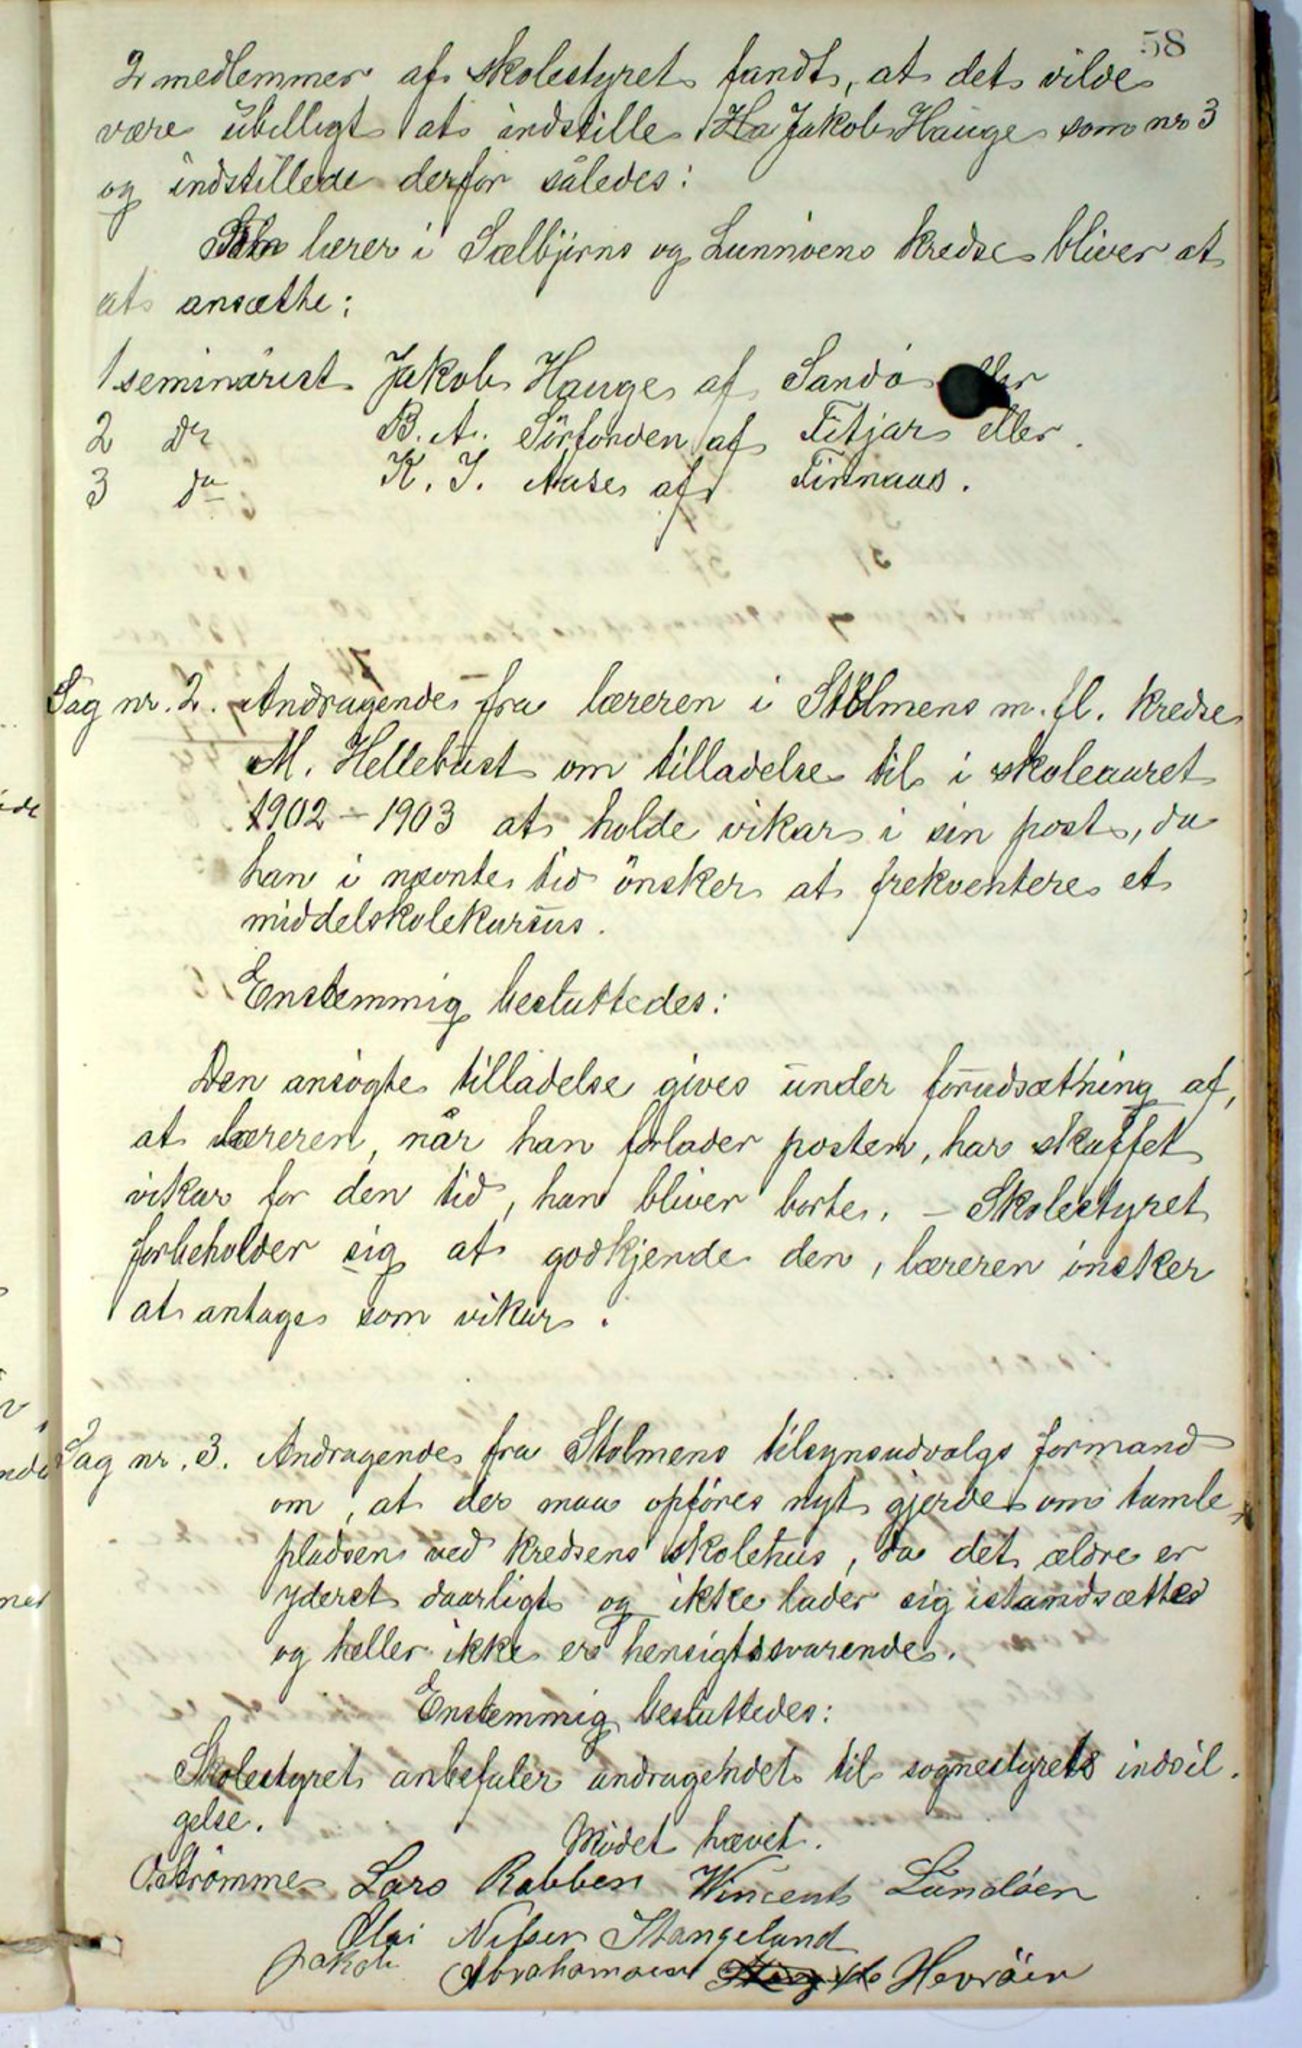 58
2 medlemmer af skolestyret fandt, at det vilde
være ubilligt at indstille Ha Jakob Hauge som nr 3
og indstillede derfor således:
Som lærer i Sælbjørns og Lunnøens kredse bliver at
at ansætte:
1 seminarist Jakob Hauge af Sandø eller
2 do B. A. Sørfonden af Fitjar eller.
3 do K. J. Aase af Finnaas.
Sag nr. 2. Andragende fra læreren i Stolmens m. fl. kredse
M. Hellebust om tilladelse til i skoleaaret
1902 - 1903 at holde vikar i sin post, da
han i nævnte tid ønsker at frekventere et
middelskolekursus.
Enstemmig besluttedes:
Den ansøgte tilladelse gives under forudsætning af,
at læreren, når han forlader posten, har skaffet
vikar for den tid, han bliver borte. - Skolestyret
forbeholder sig at godkjende den, læreren ønsker
at antage som vikar.
Sag nr. 3. Andragende fra Stolmens tilsynsudvalgs formand
om, at der maa opføres nyt gjerde om tumle
pladsen ved kredsens skolehus, da det ældre er
yderst daarligt og ikke lader sig istandsættes
og heller ikke er hensigtssvarende.
Enstemmig besluttedes:
Skolestyret anbefaler andragendet til sognestyrets indvil.
gelse.
Mødet hævet.
O. Strømme Lars Rabben Wincents Lundøen
Olai Nilsen Stangeland
Jakob Abrahamsen Hevrøen